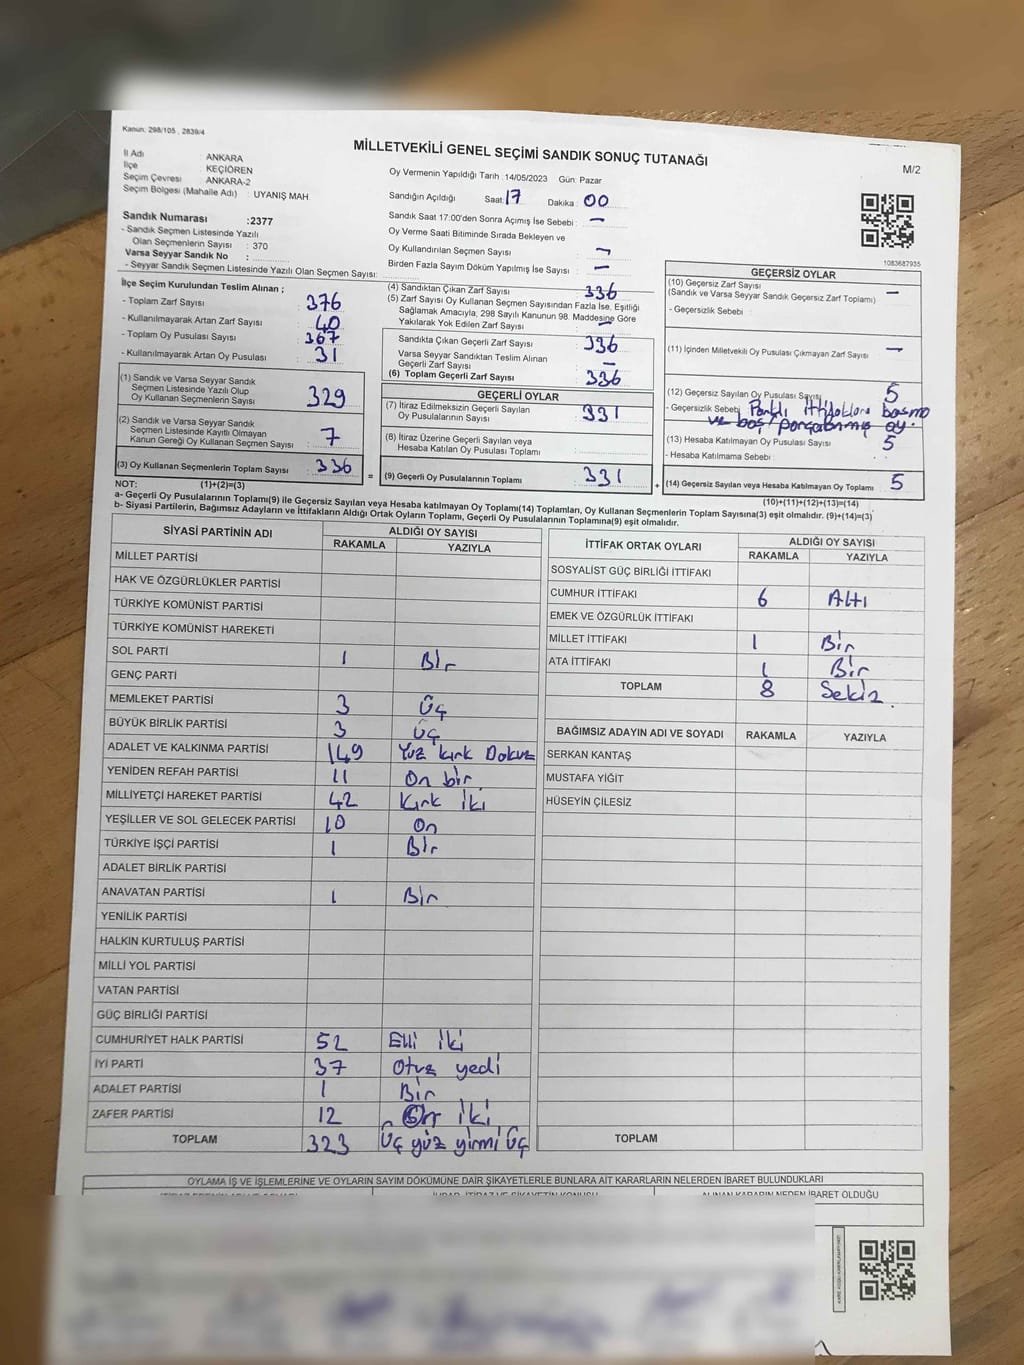 Kanun, 298/105 , 2839/4
MİLLETVEKİLİ GENEL SEÇİMİ SANDIK SONUÇ TUTANAĞI
M/2
İl Adı : ANKARA
İlçe : KEÇİÖREN
Seçim Çevresi : ANKARA-2
Seçim Bölgesi (Mahalle Adı) : UYANIŞ MAH
Sandık Numarası :2377
- Sandık Seçmen Listesinde Yazılı
Olan Seçmenlerin Sayısı : 370
Varsa Seyyar Sandık No :
- Seyyar Sandık Seçmen Listesinde Yazılı Olan Seçmen Sayısı:
Oy Vermenin Yapıldığı Tarih :14/05/2023 Gün: Pazar
Sandığın Açıldığı Saat: 17 Dakika : 00
Sandık Saat 17:00'den Sonra Açımış İse Sebebi : -
Oy Verme Saati Bitiminde Sırada Bekleyen ve
Oy Kullandırılan Seçmen Sayısı : -
Birden Fazla Sayım Döküm Yapılmış İse Sayısı : -
1083687935
İlçe Seçim Kurulundan Teslim Alınan ;
- Toplam Zarf Sayısı : 376
- Kullanılmayarak Artan Zarf Sayısı : 40
- Toplam Oy Pusulası Sayısı : 367
- Kullanılmayarak Artan Oy Pusulası : 31
(1) Sandık ve Varsa Seyyar Sandık
Seçmen Listesinde Yazılı Olup
Oy Kullanan Seçmenlerin Sayısı : 329
(2) Sandık ve Varsa Seyyar Sandık
Seçmen Listesinde Kayıtlı Olmayan
Kanun Gereği Oy Kullanan Seçmen Sayısı : 7
(3) Oy Kullanan Seçmenlerin Toplam Sayısı : 336
(4) Sandıktan Çıkan Zarf Sayısı : 336
(5) Zarf Sayısı Oy Kullanan Seçmen Sayısından Fazla İse, Eşitliği
Sağlamak Amacıyla, 298 Sayılı Kanunun 98. Maddesine Göre
Yakılarak Yok Edilen Zarf Sayısı : -
Sandıkta Çıkan Geçerli Zarf Sayısı : 336
Varsa Seyyar Sandıktan Teslim Alınan
Geçerli Zarf Sayısı : -
(6) Toplam Geçerli Zarf Sayısı : 336
GEÇERLİ OYLAR
(7) İtiraz Edilmeksizin Geçerli Sayılan
Oy Pusulalarının Sayısı : 331
(8) İtiraz Üzerine Geçerli Sayılan veya
Hesaba Katılan Oy Pusulası Toplamı :
= (9) Geçerli Oy Pusulalarının Toplamı : 331
GEÇERSİZ OYLAR
(10) Geçersiz Zarf Sayısı
(Sandık ve Varsa Seyyar Sandık Geçersiz Zarf Toplamı) -
- Geçersizlik Sebebi :
(11) İçinden Milletvekili Oy Pusulası Çıkmayan Zarf Sayısı : -
(12) Geçersiz Sayılan Oy Pusulası Sayısı : 5
- Geçersizlik Sebebi : Farklı ittifaklara basma
ve boş/parçalanmış oy.
(13) Hesaba Katılmayan Oy Pusulası Sayısı : 5
- Hesaba Katılmama Sebebi :
+ (14) Geçersiz Sayılan veya Hesaba Katılmayan Oy Toplamı : 5
NOT: (1)+(2)=(3)
(10)+(11)+(12)+(13)=(14)
a- Geçerli Oy Pusulalarının Toplamı(9) ile Geçersiz Sayılan veya Hesaba katılmayan Oy Toplamı(14) Toplamları, Oy Kullanan Seçmenlerin Toplam Sayısına(3) eşit olmalıdır. (9)+(14)=(3)
b- Siyasi Partilerin, Bağımsız Adayların ve İttifakların Aldığı Ortak Oyların Toplamı, Geçerli Oy Pusulalarının Toplamına(9) eşit olmalıdır.
SİYASİ PARTİNİN ADI ALDIĞI OY SAYISI
RAKAMLA YAZIYLA
MİLLET PARTİSİ
HAK VE ÖZGÜRLÜKLER PARTİSİ
TÜRKİYE KOMÜNİST PARTİSİ
TÜRKİYE KOMÜNİST HAREKETİ
SOL PARTİ 1 Bir
GENÇ PARTİ
MEMLEKET PARTİSİ 3 Üç
BÜYÜK BİRLİK PARTİSİ 3 Üç
ADALET VE KALKINMA PARTİSİ 149 Yüz kırk Dokuz
YENİDEN REFAH PARTİSİ 11 On bir
MİLLİYETÇİ HAREKET PARTİSİ 42 Kırk iki
YEŞİLLER VE SOL GELECEK PARTİSİ 10 On
TÜRKİYE İŞÇİ PARTİSİ 1 Bir
ADALET BİRLİK PARTİSİ
ANAVATAN PARTİSİ 1 Bir
YENİLİK PARTİSİ
HALKIN KURTULUŞ PARTİSİ
MİLLİ YOL PARTİSİ
VATAN PARTİSİ
GÜÇ BİRLİĞİ PARTİSİ
CUMHURİYET HALK PARTİSİ 52 Elli iki
İYİ PARTİ 37 Otuz yedi
ADALET PARTİSİ 1 Bir
ZAFER PARTİSİ 12 On iki
TOPLAM 323 Üç yüz yirmi üç
İTTİFAK ORTAK OYLARI ALDIĞI OY SAYISI
RAKAMLA YAZIYLA
SOSYALİST GÜÇ BİRLİĞİ İTTİFAKI
CUMHUR İTTİFAKI 6 Altı
EMEK VE ÖZGÜRLÜK İTTİFAKI
MİLLET İTTİFAKI 1 Bir
ATA İTTİFAKI 1 Bir
TOPLAM 8 Sekiz
BAĞIMSIZ ADAYIN ADI VE SOYADI RAKAMLA YAZIYLA
SERKAN KANTAŞ
MUSTAFA YİĞİT
HÜSEYİN ÇİLESİZ
TOPLAM
OYLAMA İŞ VE İŞLEMLERİNE VE OYLARIN SAYIM DÖKÜMÜNE DAİR ŞİKAYETLERLE BUNLARA AİT KARARLARIN NELERDEN İBARET BULUNDUKLARI
ALINAN KARARIN NEDEN İBARET OLDUĞU